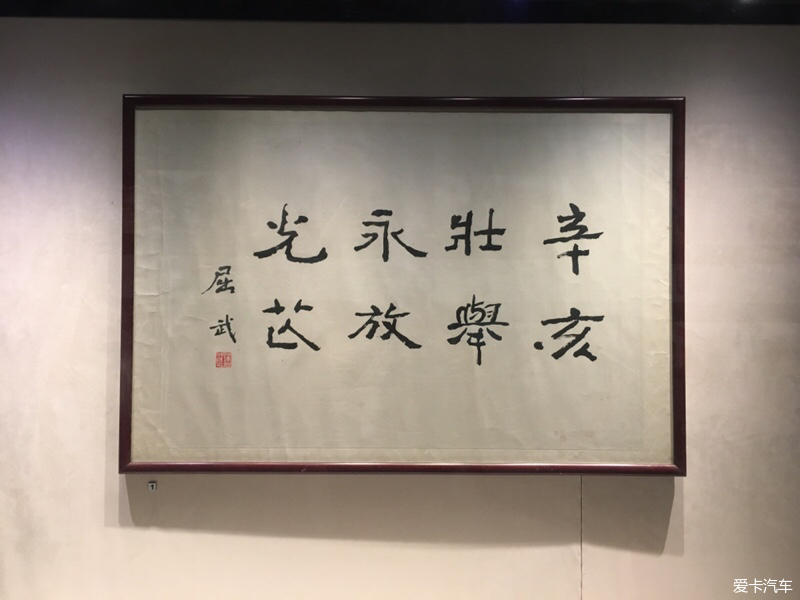 辛亥
壯舉
永放
光芒
屈武
1
爱卡汽车